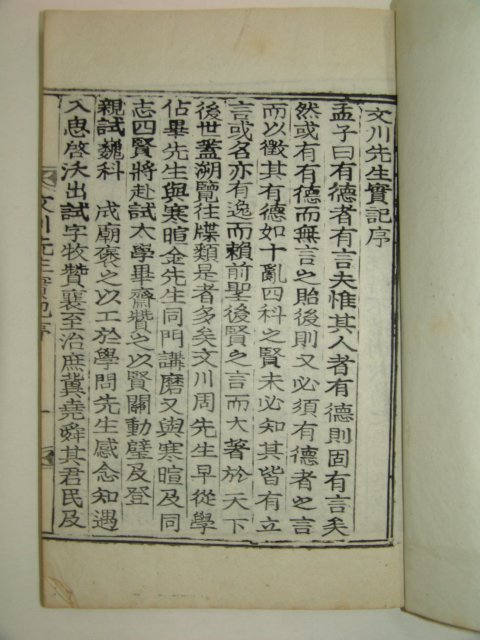 文川先生實記序
孟子曰有德者有言夫惟其人者有德則固有言矣
然或有有德而無言之貽後則又必須有德者之言
而以徵其有德如十亂四科之賢未必知其皆有立
言或名亦有逸而賴前聖後賢之言而大著於天下
後世蓋溯覽往牒類是者多矣文川周先生早從學
佔畢先生與寒暄金先生同門講磨又與寒暄及同
志四賢將赴試太學畢齋贊之以賢關動璧及登
親試魏科 成廟褒之以工於學問先生感念知遇
入思啓沃出試字牧贊襄至治庶冀堯舜其君民及
文川先生實記序 一